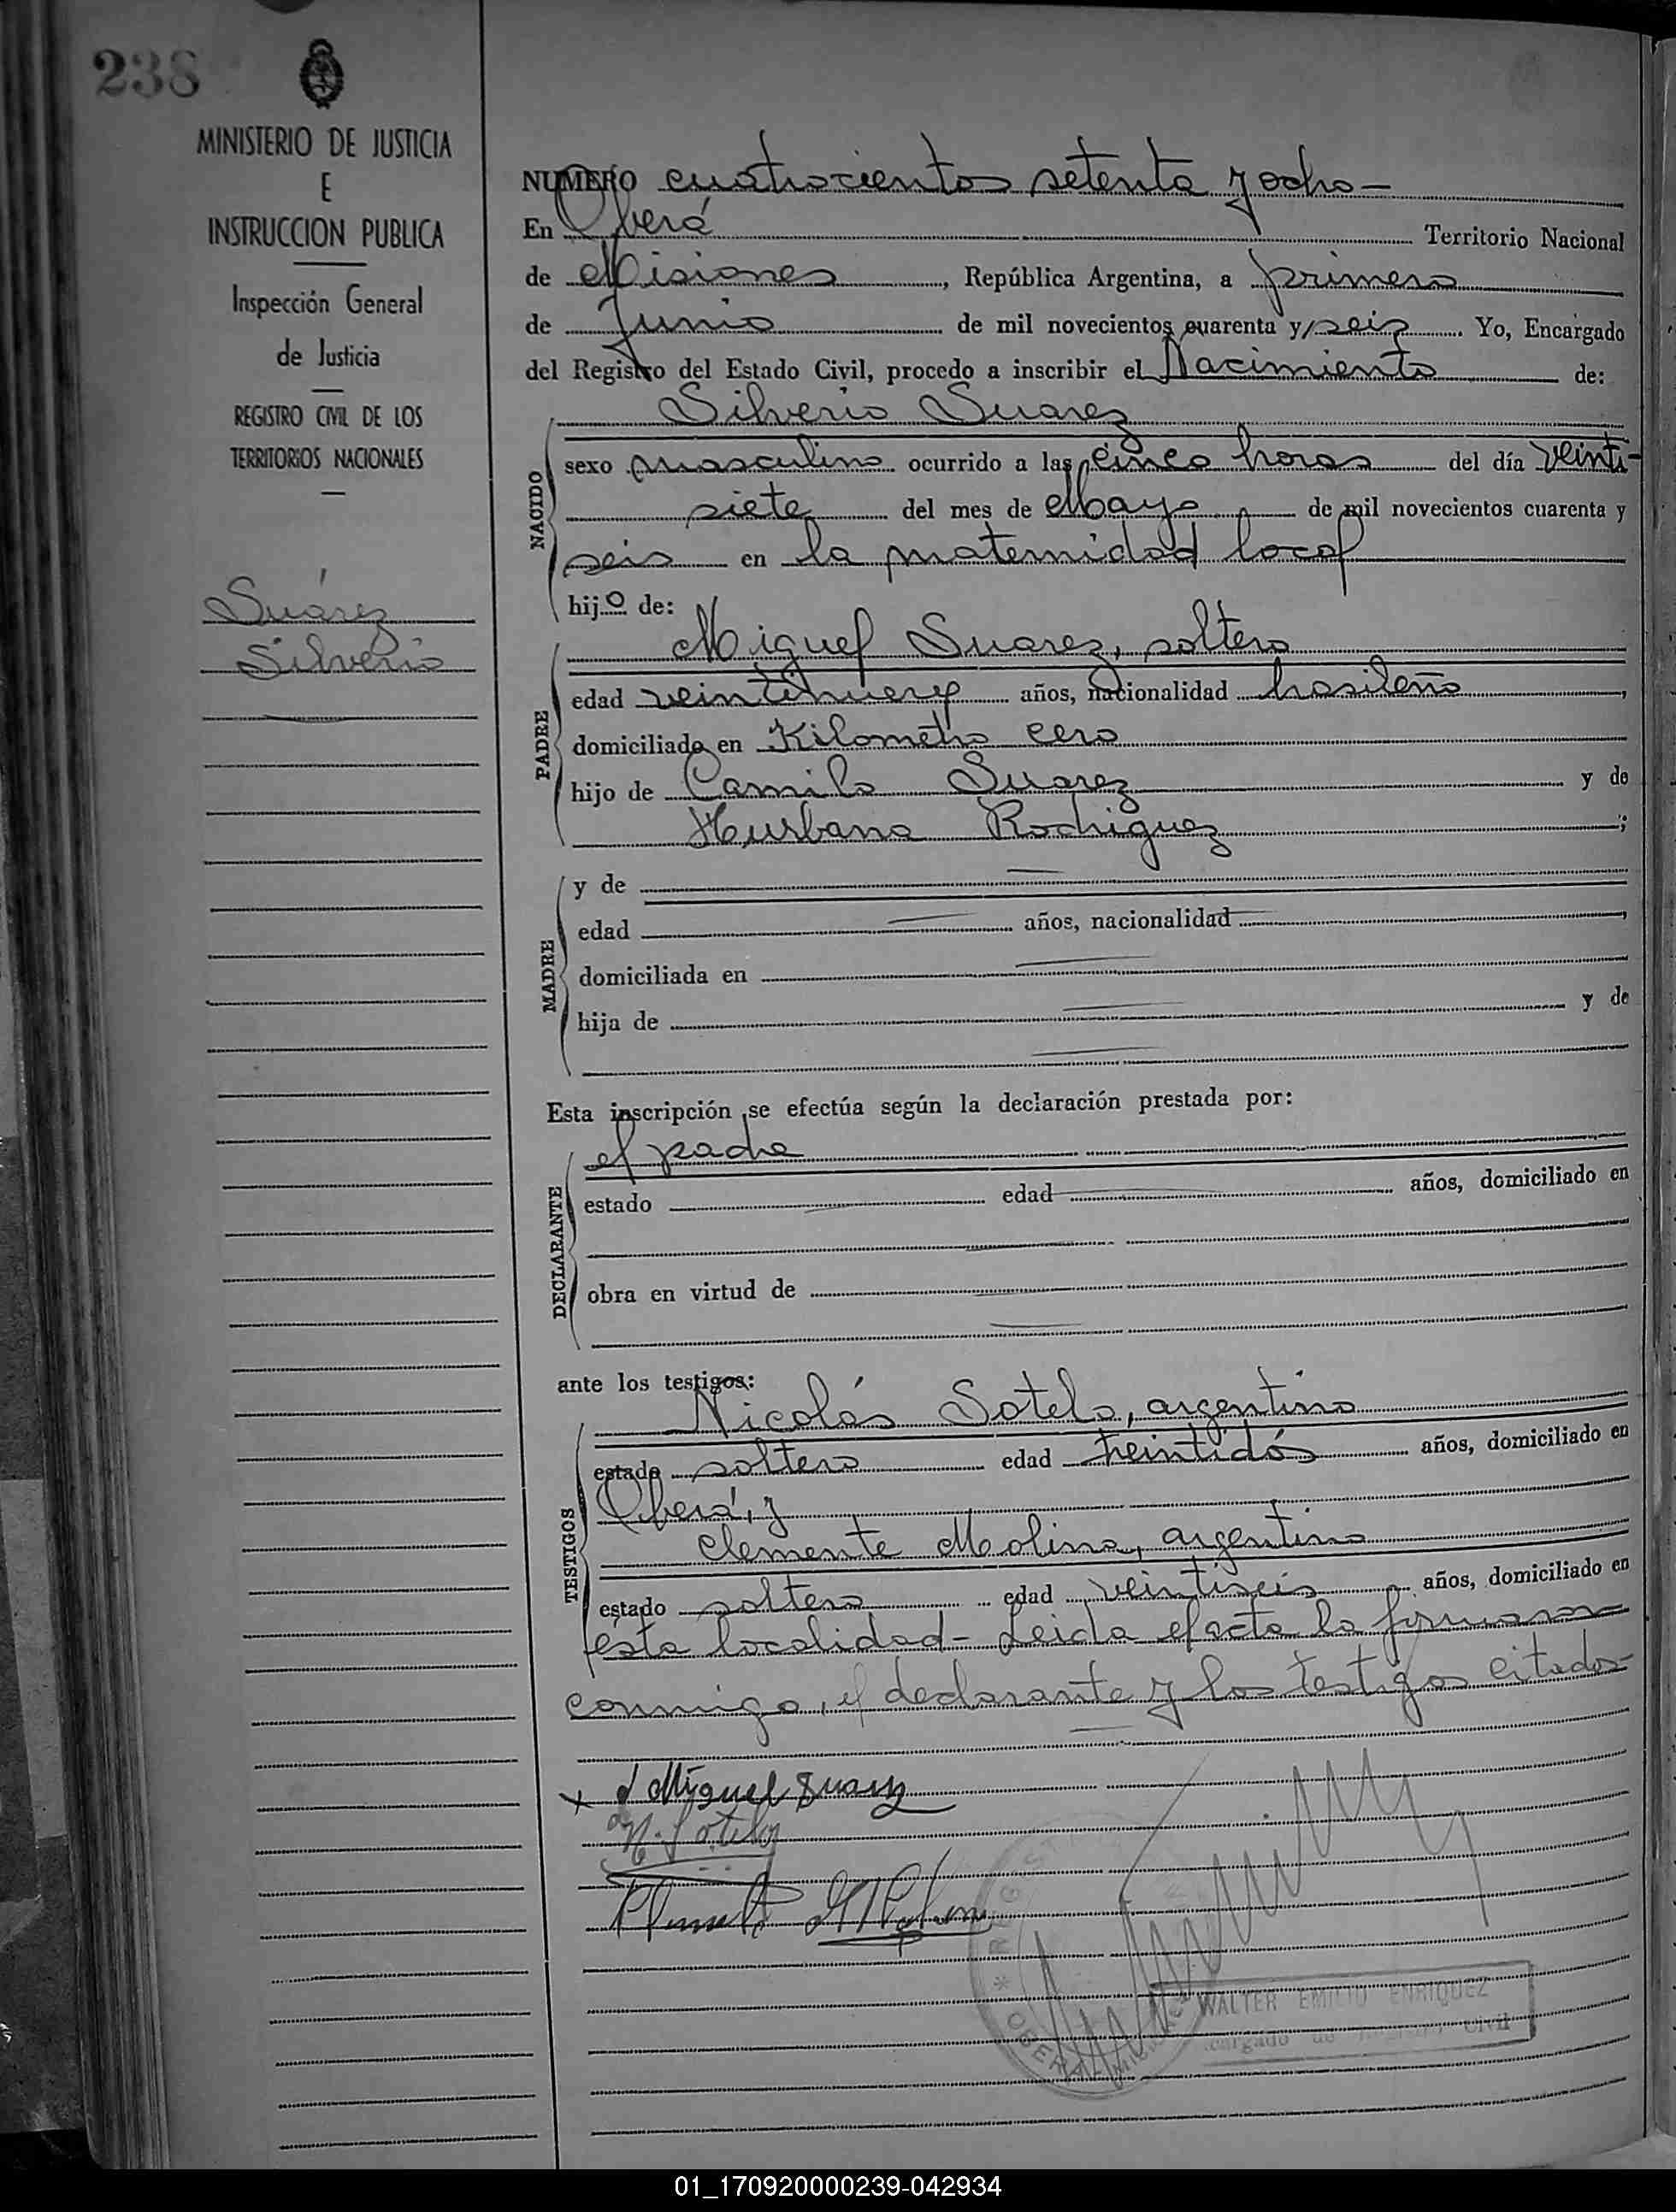 238
MINISTERIO DE JUSTICIA
E
INSTRUCCION PUBLICA
Inspección General
de Justicia
REGISTRO CIVIL DE LOS
TERRITORIOS NACIONALES
Suárez
Silverio
NUMERO cuatrocientos setenta y ocho -
En Oberá Territorio Nacional
de Misiones, República Argentina, a primero
de Junio de mil novecientos cuarenta y/seis. Yo, Encargado
del Registro del Estado Civil, procedo a inscribir el Nacimiento de:
Silverio Suarez
NACIDO
sexo masculino ocurrido a las cinco horas del día veinti-
siete del mes de Mayo de mil novecientos cuarenta y
seis en la maternidad local
hijo de:
Miguel Suarez, soltero
PADRE
edad veintinueve años, nacionalidad brasileño,
domiciliado en Kilometro cero
hijo de Camilo Suarez y de
Hurbana Rodriguez;
MADRE
y de
edad años, nacionalidad,
domiciliada en
hija de y de
Esta inscripción se efectúa según la declaración prestada por:
el padre
DECLARANTE
estado edad años, domiciliado en
obra en virtud de
ante los testigos:
Nicolás Sotelo, argentino
TESTIGOS
estado soltero edad treintidós años, domiciliado en
Oberá, y
Clemente Molina, argentino
estado soltero edad veintiseis años, domiciliado en
ésta localidad - Leida el acta la firmaron
conmigo, el declarante y los testigos citados -
x Miguel Suarez
N. Sotelo
WALTER EMILIO ENRIQUEZ
Civil
OBERA
01_170920000239-042934